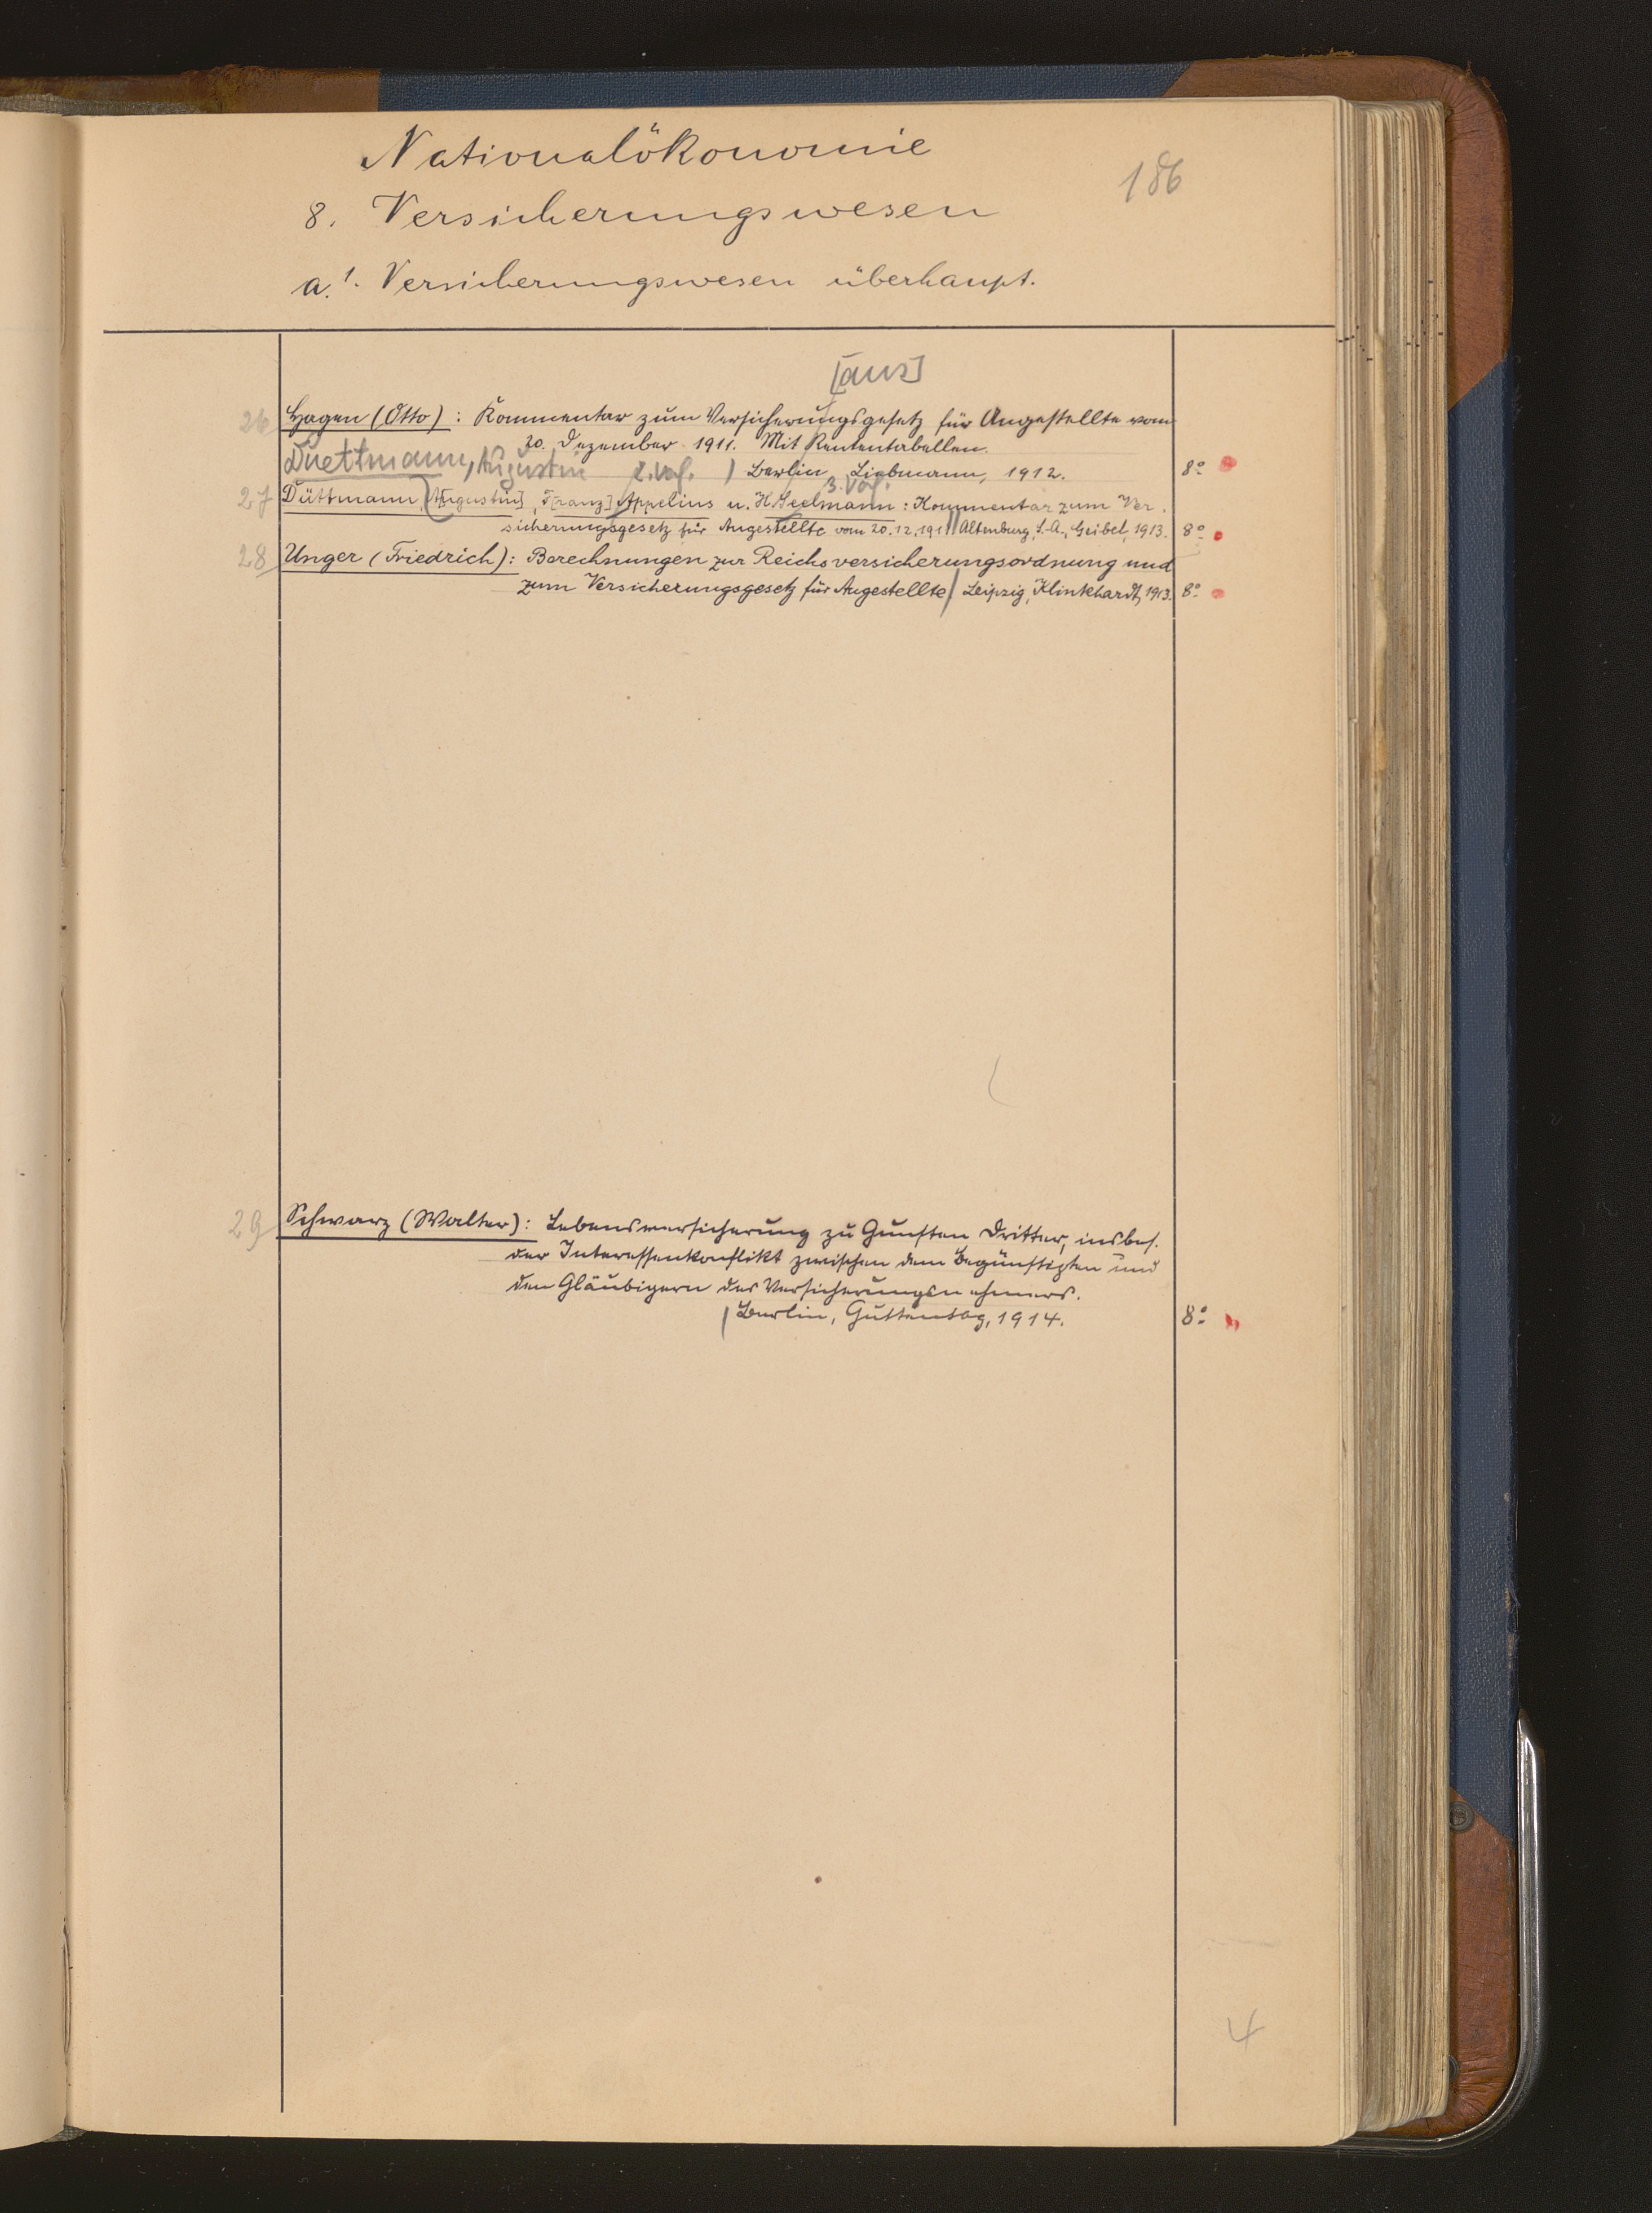 Nationalökonomie
186
8. Versicherungswesen
a.1. Versicherungswesen überhaupt.
[aus]
26 Hagen (Otto): Kommentar zum Versicherungsgesetz für Angestellte vom
20. Dezember 1911. Mit Rententabellen.
Duettmann, Augustin 2. Verf. | Berlin, Liebmann, 1912. 8°
3. Verf.
27 Düttmann, A[ugustin], F[ranz] Appelius u. H. Seelmann: Kommentar zum Ver-
sicherungsgesetz für Angestellte vom 20.12.1911 | Altenburg, S.-A., Geibel, 1913. 8°
28 Unger (Friedrich): Berechnungen zur Reichsversicherungsordnung und
zum Versicherungsgesetz für Angestellte | Leipzig, Klinkhardt, 1913. 8°
29 Schwarz (Walter): Lebensversicherung zu Gunsten Dritter, insbes.
der Interessenkonflikt zwischen dem Begünstigten und
den Gläubigern des Versicherungsnehmers.
| Berlin, Guttentag, 1914. 8°
4